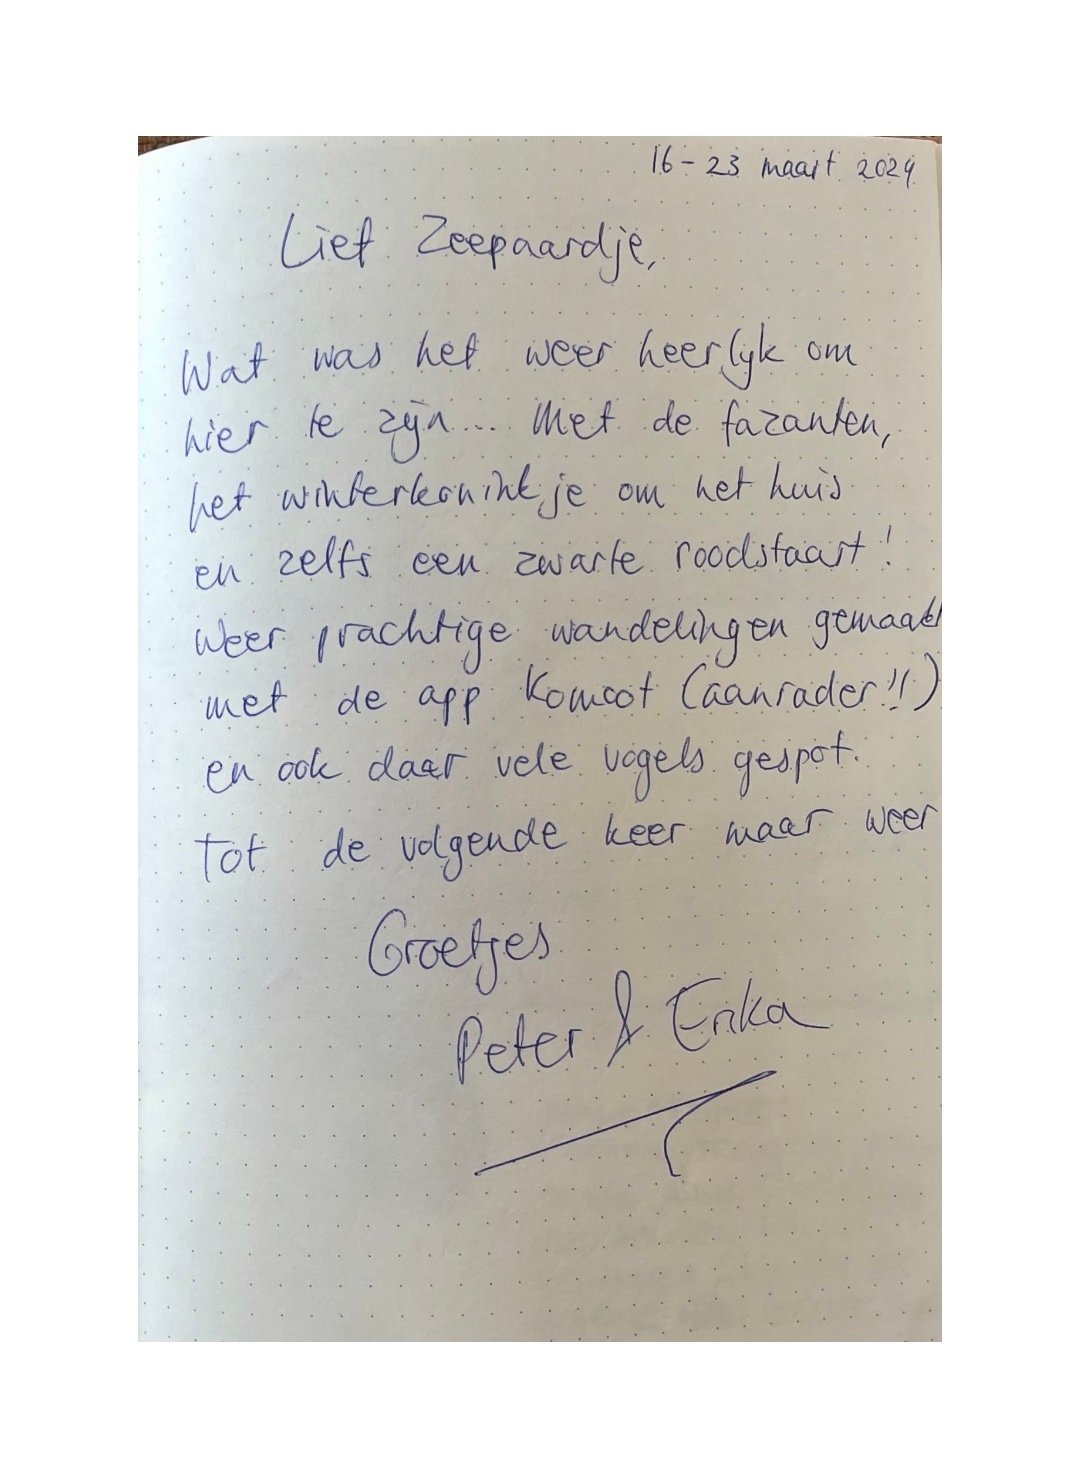 16 - 23 maart 2024
Lief Zeepaardje,
Wat was het weer heerlyk om
hier te zijn... Met de fazanten,
het winterkoninkje om het huis
en zelfs een zwarte roodstaart!
Weer prachtige wandelingen gemaakt
met de app Komoot (aanrader!!)
en ook daar vele vogels gespot.
Tot de volgende keer maar weer
Groetjes
Peter & Erika